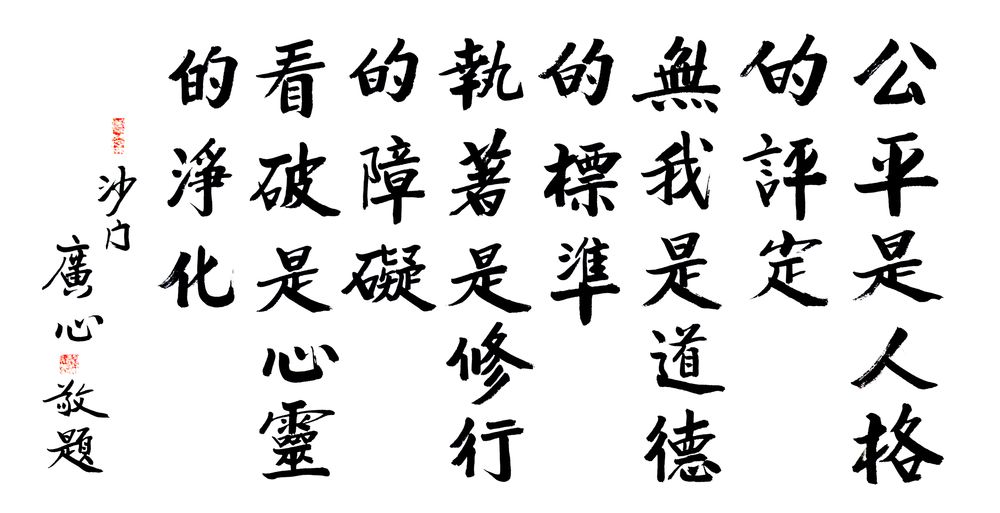 公平是人格
的評定
無我是道德
的標準
執著是修行
的障礙
看破是心靈
的淨化
沙门
廣心
敬題